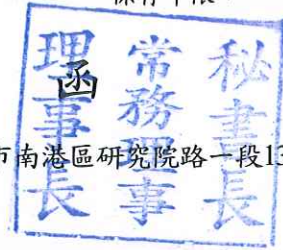 保存年限
函
市南港區研究院路一段13
秘書長
常務理事
理事長